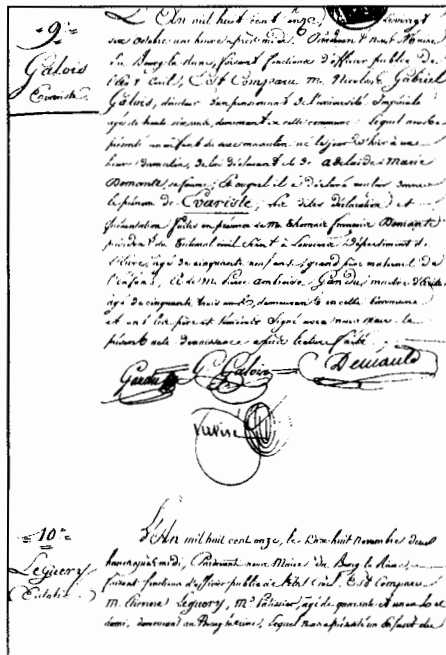 9.
Galois
Evariste.
L'An mil huit cent onze, le vingt
six octobre une heure après midi. Pardevant nous Maire
du Bourg la Reine, faisant fonctions d'officier public de
l'état Civil, Est Comparu M. Nicolas Gabriel
Galois, directeur d'un pensionnat de l'université Impériale
agé de trente six ans, demeurant en cette commune; lequel nous a
présenté un enfant du sexe masculin né le jour d'hier à une
heure du matin, de lui déclarant et de adelaïde Marie
Demante, sa femme; Et auquel il a déclaré vouloir donner
le prénom de Evariste; les dites déclaration et
présentation faites en présence de M. Thomas françois Demante
président du tribunal civil séant à Louviers, Département de
l'Eure, agé de cinquante neuf ans, grand père maternel de
l'enfant, et de M. Pierre ambroise Gandu
agé de cinquante trois ans, demeurant en cette Commune
et ont les père et témoins Signé avec nous Maire le
présent acte de naissance après lecture faite.
G. Galois Demante
10
Leguery
L'An mil huit cent onze, le Dix huit novembre
Pardevant nous Maire du Bourg la Reine
faisant fonctions d'officier public de l'état Civil. Est Comparu
M. Etienne Leguery, Md Patissier, agé de quarante et un ans et
demi, demeurant au Bourg la reine, lequel nous a présenté un Enfant du